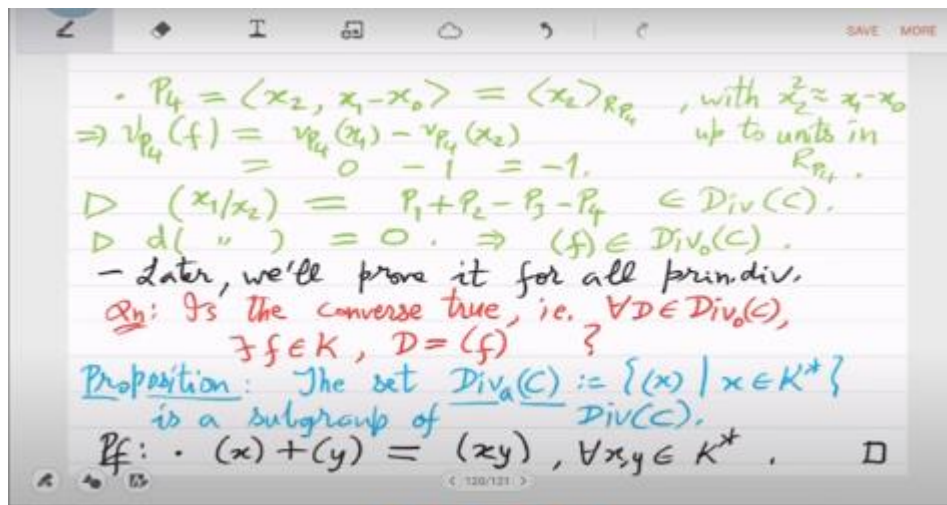 T
SAVE MORE
· P4 = ⟨x2, x1-x0⟩ = ⟨x2⟩R_P4 , with x2² ≈ x1-x0
⇒ v_P4(f) = v_P4(x1) - v_P4(x2) up to units in
= 0 - 1 = -1. R_P4.
▷ (x1/x2) = P1+P2-P3-P4 ∈ Div(C).
▷ d( " ) = 0. ⇒ (f) ∈ Div0(C).
- Later, we'll prove it for all prin.div.
Qn: Is the converse true, i.e. ∀D∈Div0(C),
∃ f∈K, D=(f) ?
Proposition: The set Div_a(C) := {(x) | x∈K*}
is a subgroup of Div(C).
Pf: · (x)+(y) = (xy), ∀x,y∈K*. □
< 120/121 >